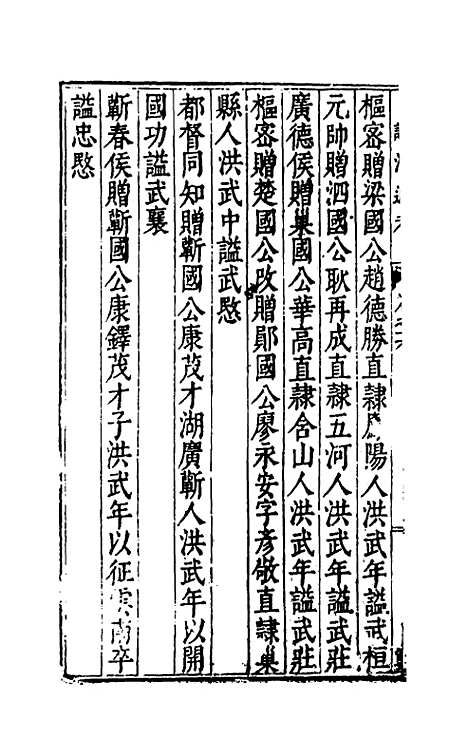 樞密贈梁國公趙德勝直隸鳳陽人洪武年謚武桓
元帥贈泗國公耿再成直隸五河人洪武年謚武莊
廣德侯贈巢國公華高直隸含山人洪武年謚武莊
樞密贈楚國公改贈鄖國公廖永安字彥敬直隸巢
縣人洪武中謚武愍
都督同知贈蘄國公康茂才湖廣蘄人洪武年以開
國功謚武襄
蘄春侯贈蘄國公康鐸茂才子洪武年以征雲南卒
謚忠愍